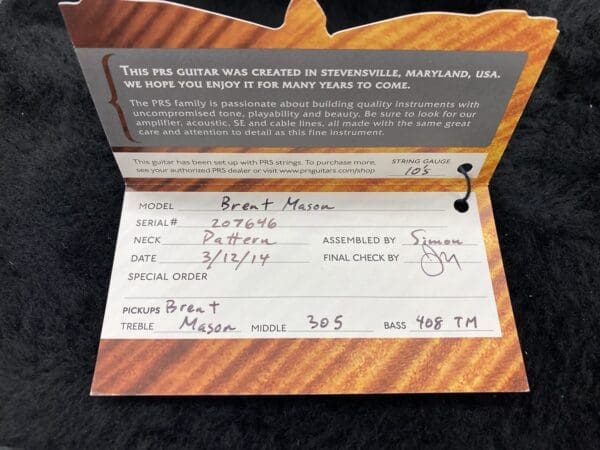 THIS PRS GUITAR WAS CREATED IN STEVENSVILLE, MARYLAND, USA.
WE HOPE YOU ENJOY IT FOR MANY YEARS TO COME.
The PRS family is passionate about building quality instruments with
uncompromised tone, playability and beauty. Be sure to look for our
amplifier, acoustic, SE and cable lines, all made with the same great
care and attention to detail as this fine instrument.
This guitar has been set up with PRS strings. To purchase more,
see your authorized PRS dealer or visit www.prsguitars.com/shop
STRING GAUGE
10's
MODEL Brent Mason
SERIAL# 207646
NECK Pattern ASSEMBLED BY Simon
DATE 3/12/14 FINAL CHECK BY
SPECIAL ORDER
PICKUPS Brent
TREBLE Mason MIDDLE 305 BASS 408 TM